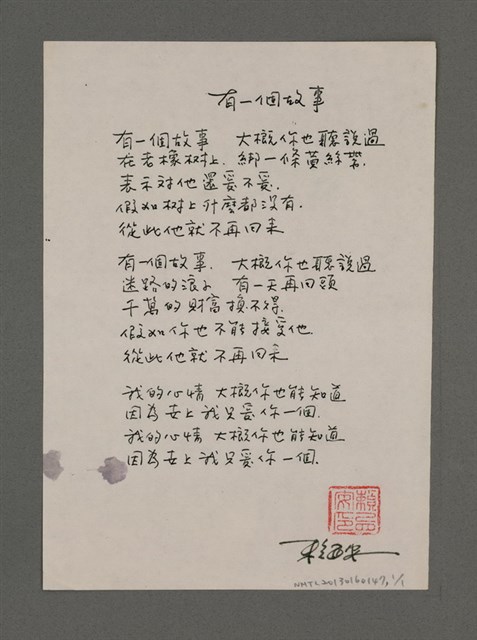 有一個故事
有一個故事 大概你也聽說過
在老橡树上. 綁一條黄絲帶.
表示对他還爱不爱.
假如树上什麼都沒有.
從此他就不再回来
有一個故事. 大概你也聽說過
迷路的浪子 有一天再回頭
千萬的財富換不得.
假如你也不能接受他.
從此他就不再回来
我的心情 大概你也能知道
因為世上我只爱你一個.
我的心情 大概你也能知道
因為世上我只爱你一個.
NMTL20130160147, 1/1